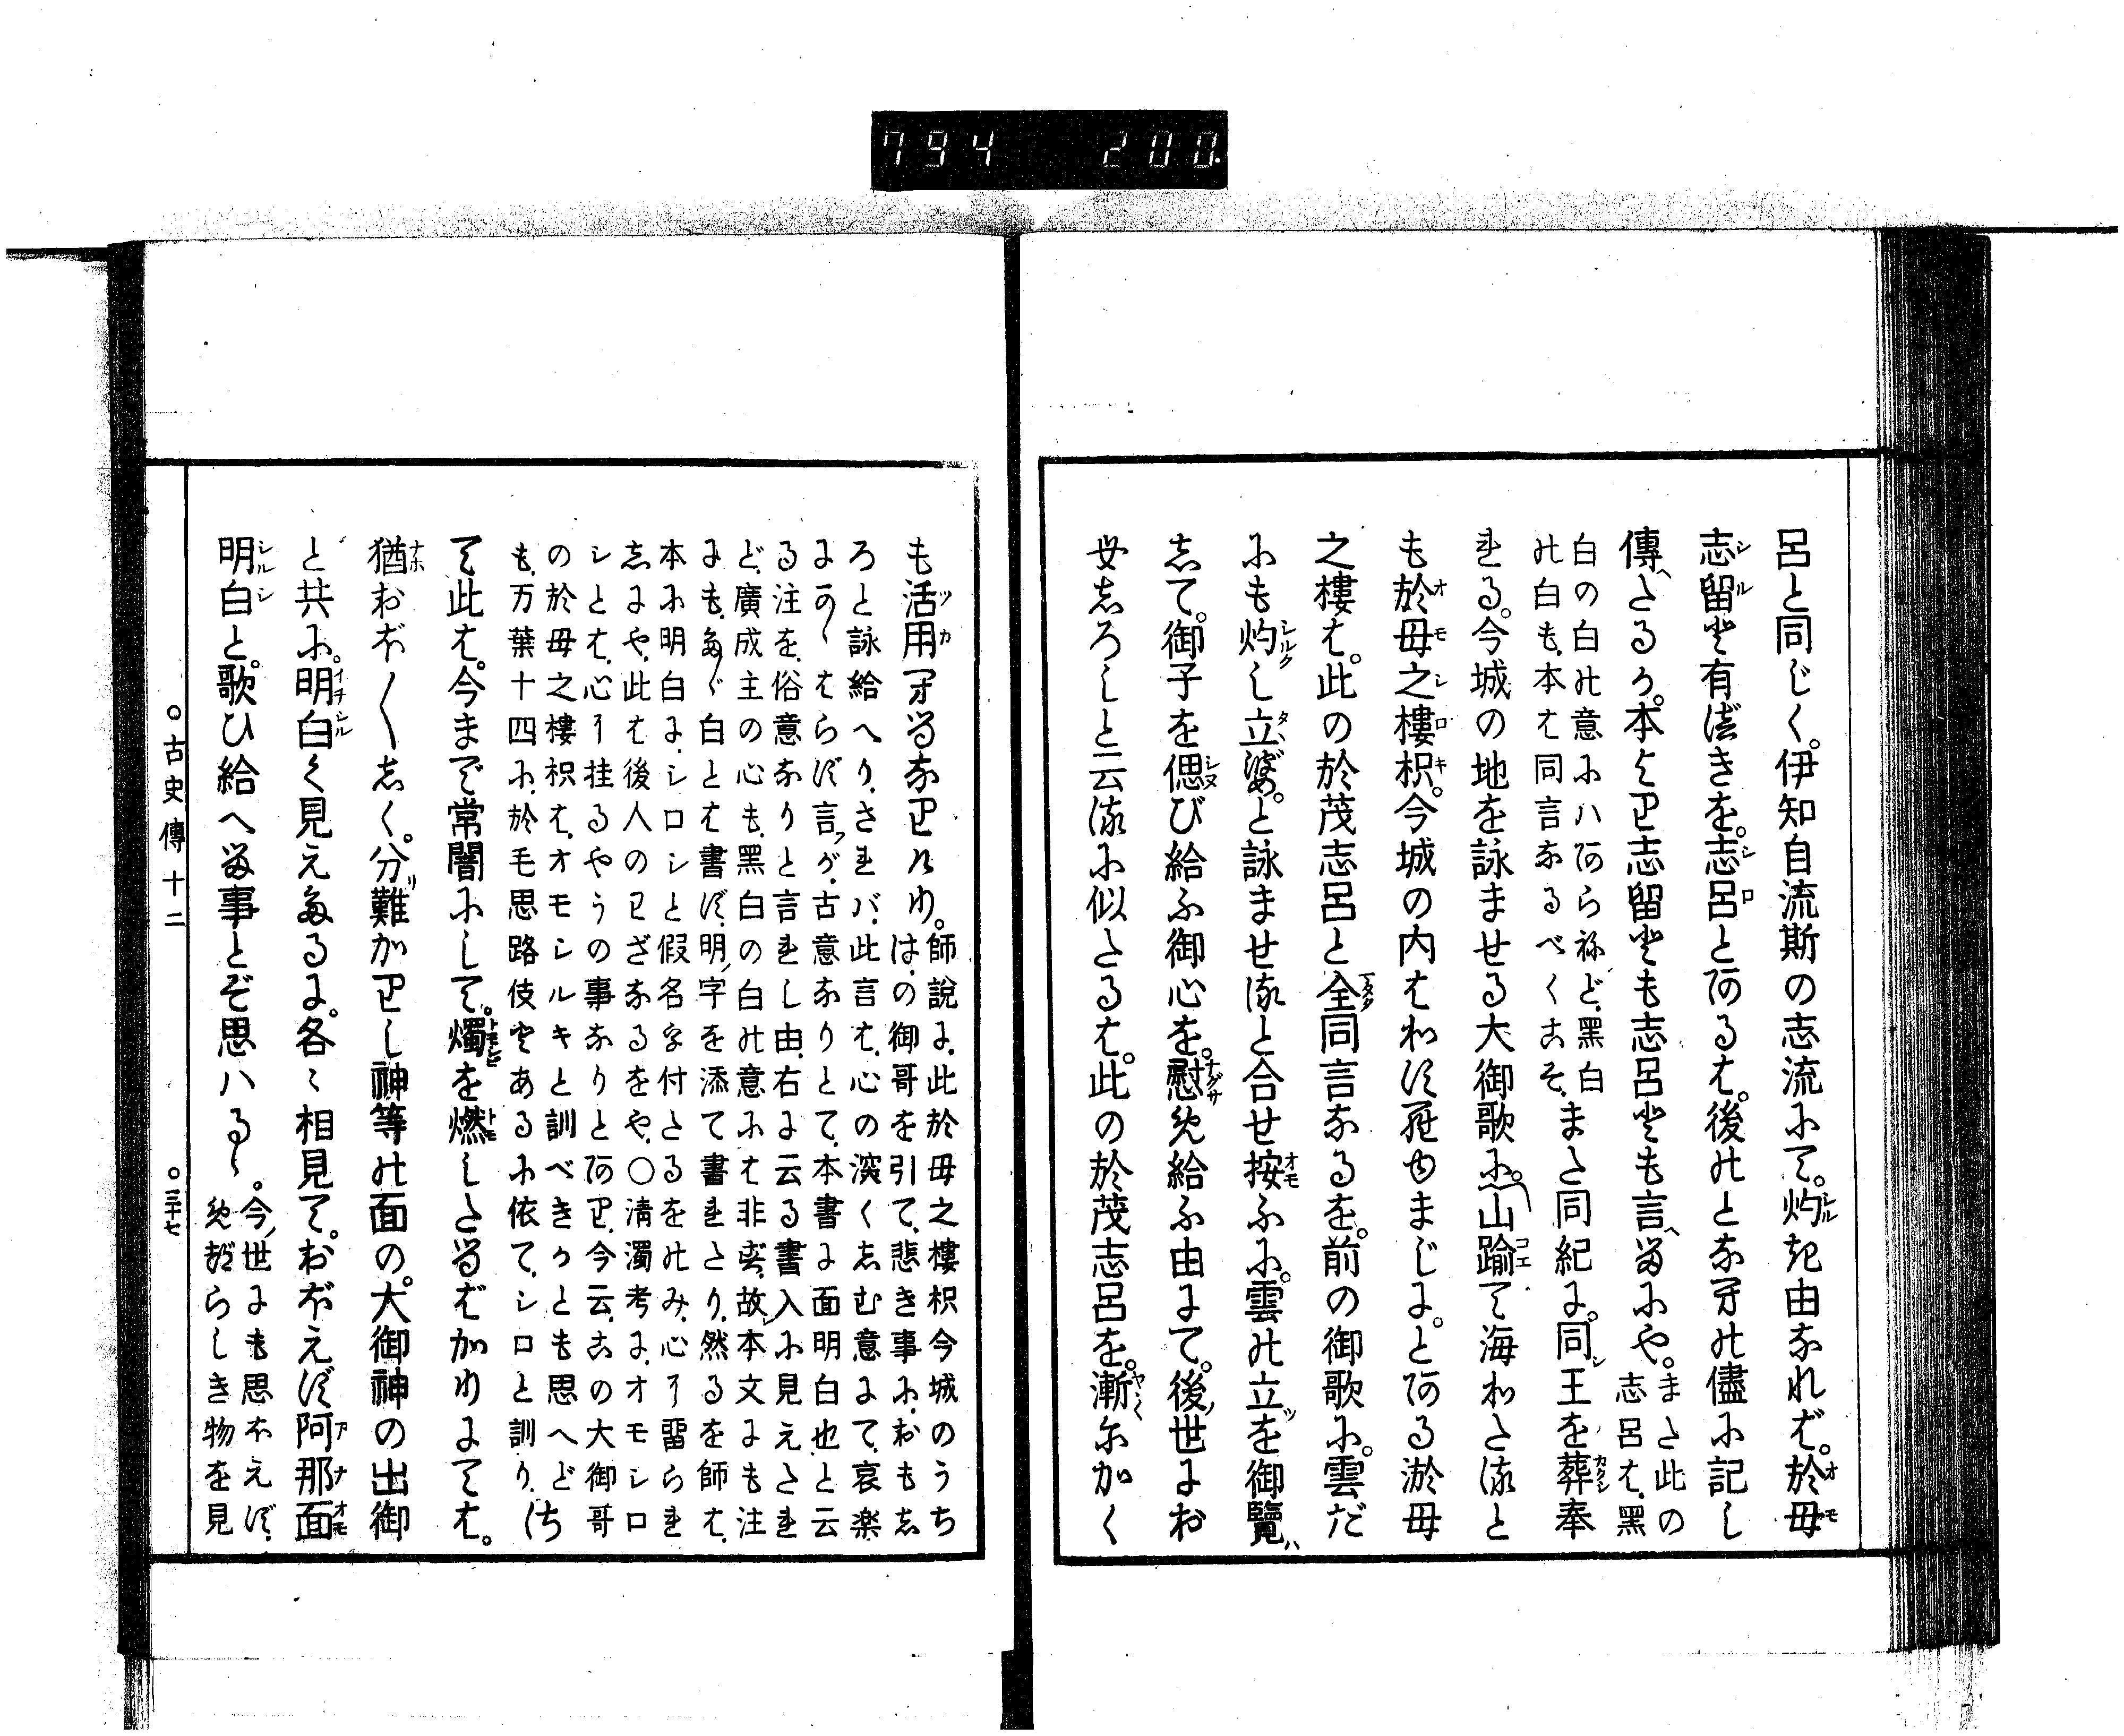 794 200.
呂と同じく。伊知自流斯の志流にて。灼き由なれば。於母
志留と有べきを。志呂とあるは。後のとなりの儘に記し
傳へたるか。本より志留とも志呂とも言へるにや。また此の志呂は、黒
白の白の意にハあらねど、黒白の白も、本は同言なるべくこそ、また同紀に。同王を葬奉
れる。今城の地を詠ませる大御歌に。山踰て海わたると
も於母之樓枳。今城の内はわすらゆまじに。とある淤母
之樓は。此の於茂志呂と全同言なるを。前の御歌に。雲だ
にも灼し立婆。と詠ませると合せ按ふに。雲の立を御覽
して。御子を偲び給ふ御心を。慰め給ふ由にて。後世にお
もしろしと云に似たるは。此の於茂志呂を。漸にかく
も活用るなりけり。師説に、此於母之樓枳今城のうちはの御哥を引て、悲き事に、おもし
ろと詠給へり、されバ、此言は、心の深くしむ意にて、哀楽
にかゝはらず言が、古意なりとて、本書に面明白也、と云
る注を、俗意なりと言れし由、右に云る書入に見えたれ
ど、廣成主の心も、黒白の白の意には非ず、故本文にも注
にも、たゞ白とは書ず、明字を添て書れたり、然るを師は、
本に明白に、シロシと假名字付たるをのみ、心に留られ
しにや、此は後人のわざなるをや、〇清濁考に、オモシロ
シとは、心に挂るやうの事なりとあり、今云、この大御哥
の於母之樓枳は、オモシルキと訓べきかとも思へど
も、万葉十四に、於毛思路伎とあるに依て、シロと訓り、さ
て此は。今まで常闇にして。燭を燃したるばかりにては。
猶おぼ〱しく。分難かりし神等の面の。大御神の出御
と共に。明白く見えたるに。各〻相見て。おぼえず阿那面
明白と。歌ひ給へる事とぞ思ハるゝ。今世にも思おえず、
めづらしき物を見
〇古史傳十二 〇三十七